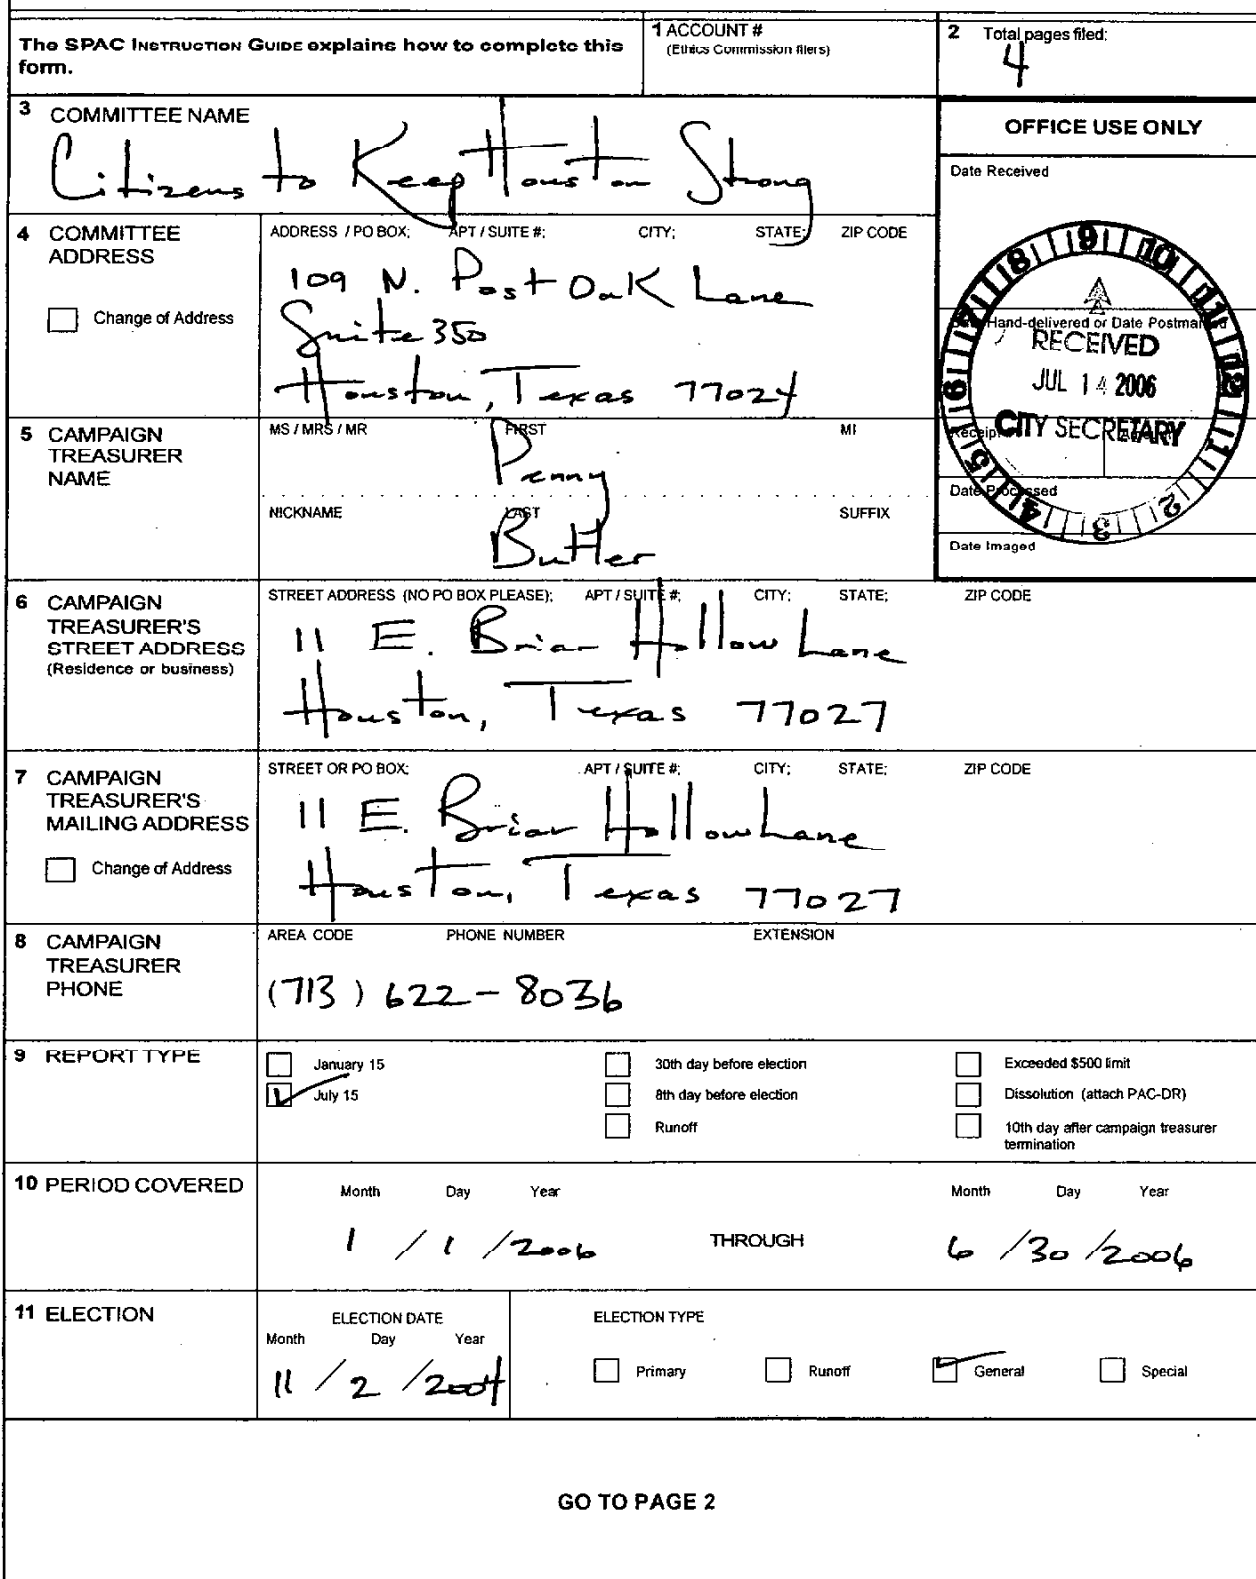 The SPAC INSTRUCTION GUIDE explains how to complete this form.
1 ACCOUNT #
(Ethics Commission filers)
2 Total pages filed:
4
3 COMMITTEE NAME
Citizens to Keep Houston Strong
OFFICE USE ONLY
Date Received
4 COMMITTEE ADDRESS
Change of Address
ADDRESS / PO BOX; APT / SUITE #; CITY; STATE; ZIP CODE
109 N. Post Oak Lane
Suite 350
Houston, Texas 77024
Hand-delivered or Date Postmarked
RECEIVED
JUL 14 2006
CITY SECRETARY
Date Processed
Date Imaged
8 9 10 11 12 1 2 3 4 5 6 7
5 CAMPAIGN TREASURER NAME
MS / MRS / MR FIRST MI
Penny
NICKNAME LAST SUFFIX
Butler
6 CAMPAIGN TREASURER'S STREET ADDRESS
(Residence or business)
STREET ADDRESS (NO PO BOX PLEASE); APT / SUITE #; CITY; STATE; ZIP CODE
11 E. Briar Hollow Lane
Houston, Texas 77027
7 CAMPAIGN TREASURER'S MAILING ADDRESS
Change of Address
STREET OR PO BOX; APT / SUITE #; CITY; STATE; ZIP CODE
11 E. Briar Hollow Lane
Houston, Texas 77027
8 CAMPAIGN TREASURER PHONE
AREA CODE PHONE NUMBER EXTENSION
(713) 622-8036
9 REPORT TYPE
January 15
July 15
30th day before election
8th day before election
Runoff
Exceeded $500 limit
Dissolution (attach PAC-DR)
10th day after campaign treasurer termination
10 PERIOD COVERED
Month Day Year
1 / 1 / 2006
THROUGH
Month Day Year
6 / 30 / 2006
11 ELECTION
ELECTION DATE
Month Day Year
11 / 2 / 2004
ELECTION TYPE
Primary Runoff General Special
GO TO PAGE 2